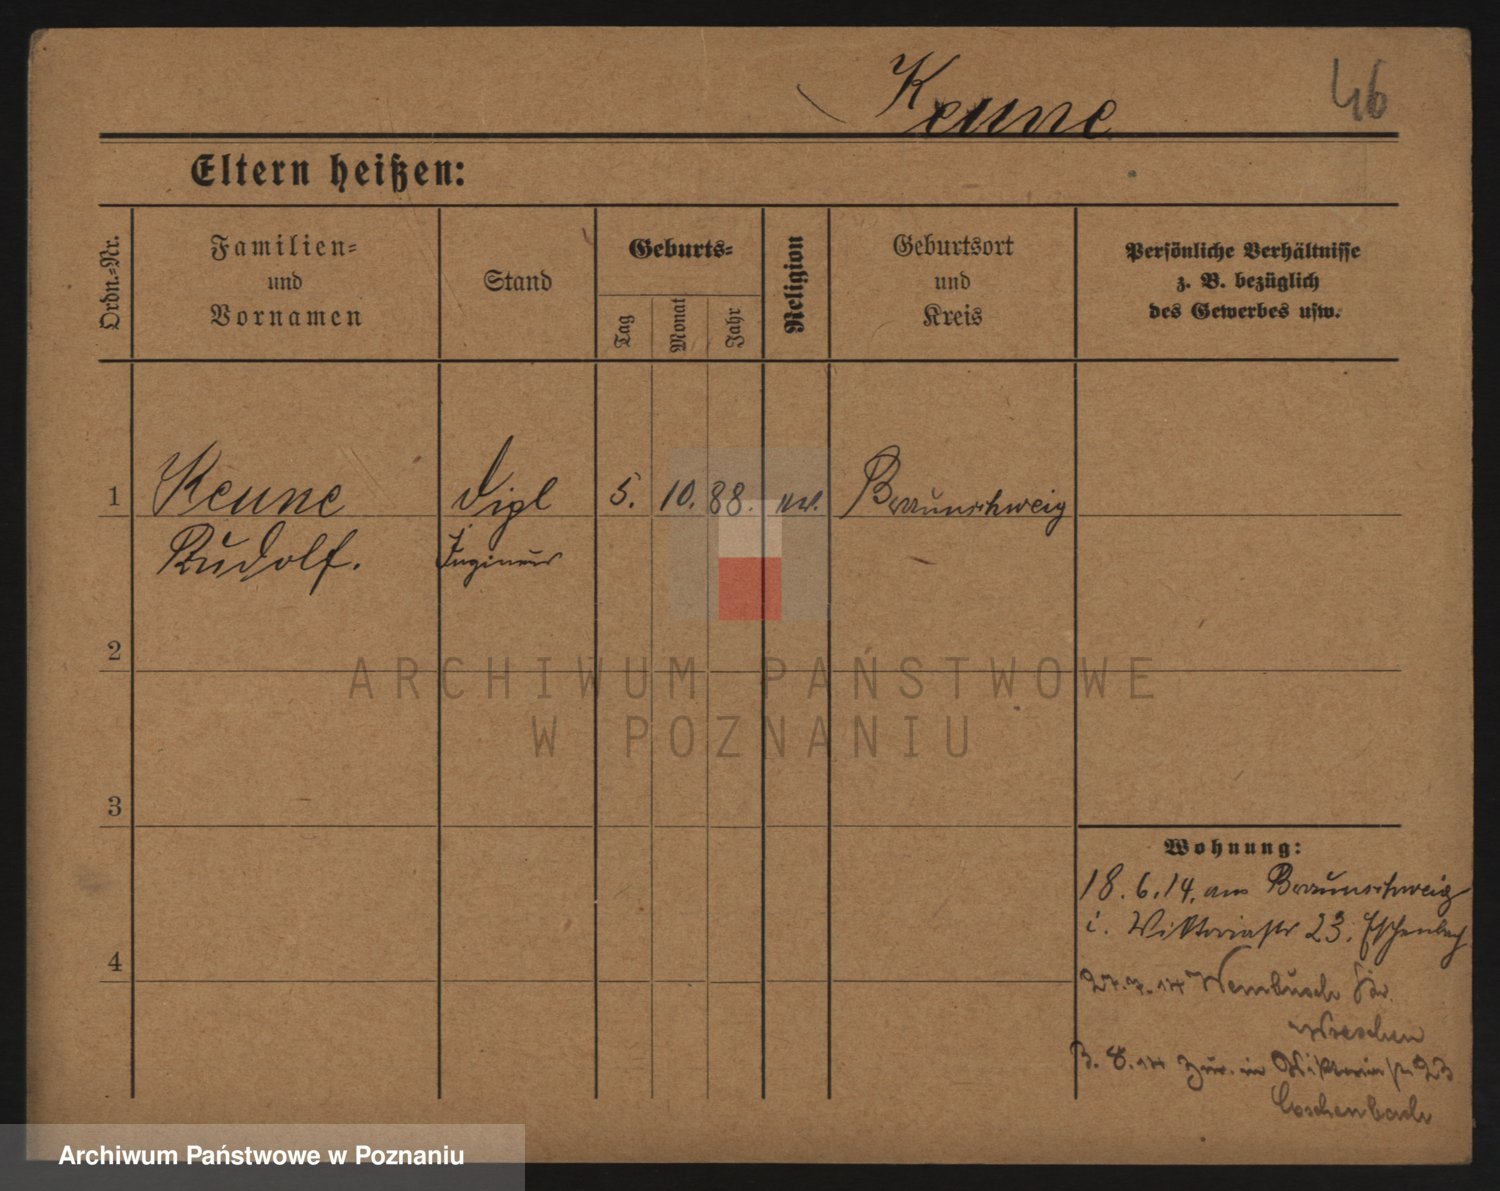 Keune
46
Eltern heißen:
Ordn.-Nr.
Familien-
und
Vornamen
Stand
Geburts-
Tag
Monat
Jahr
Religion
Geburtsort
und
Kreis
Persönliche Verhältnisse
z. B. bezüglich
des Gewerbes usw.
1 Keune Dipl 5. 10. 88. ev. Braunschweig
Rudolf. Ingenieur
2
3
4
Wohnung:
18.6.14. aus Braunschweig
i. Viktoriastr 23. Eschenbach
27.7.14
Wreschen
3. 8. 14 zur. in Viktoriastr 23
Eschenbach
ARCHIWUM PAŃSTWOWE
W POZNANIU
Archiwum Państwowe w Poznaniu